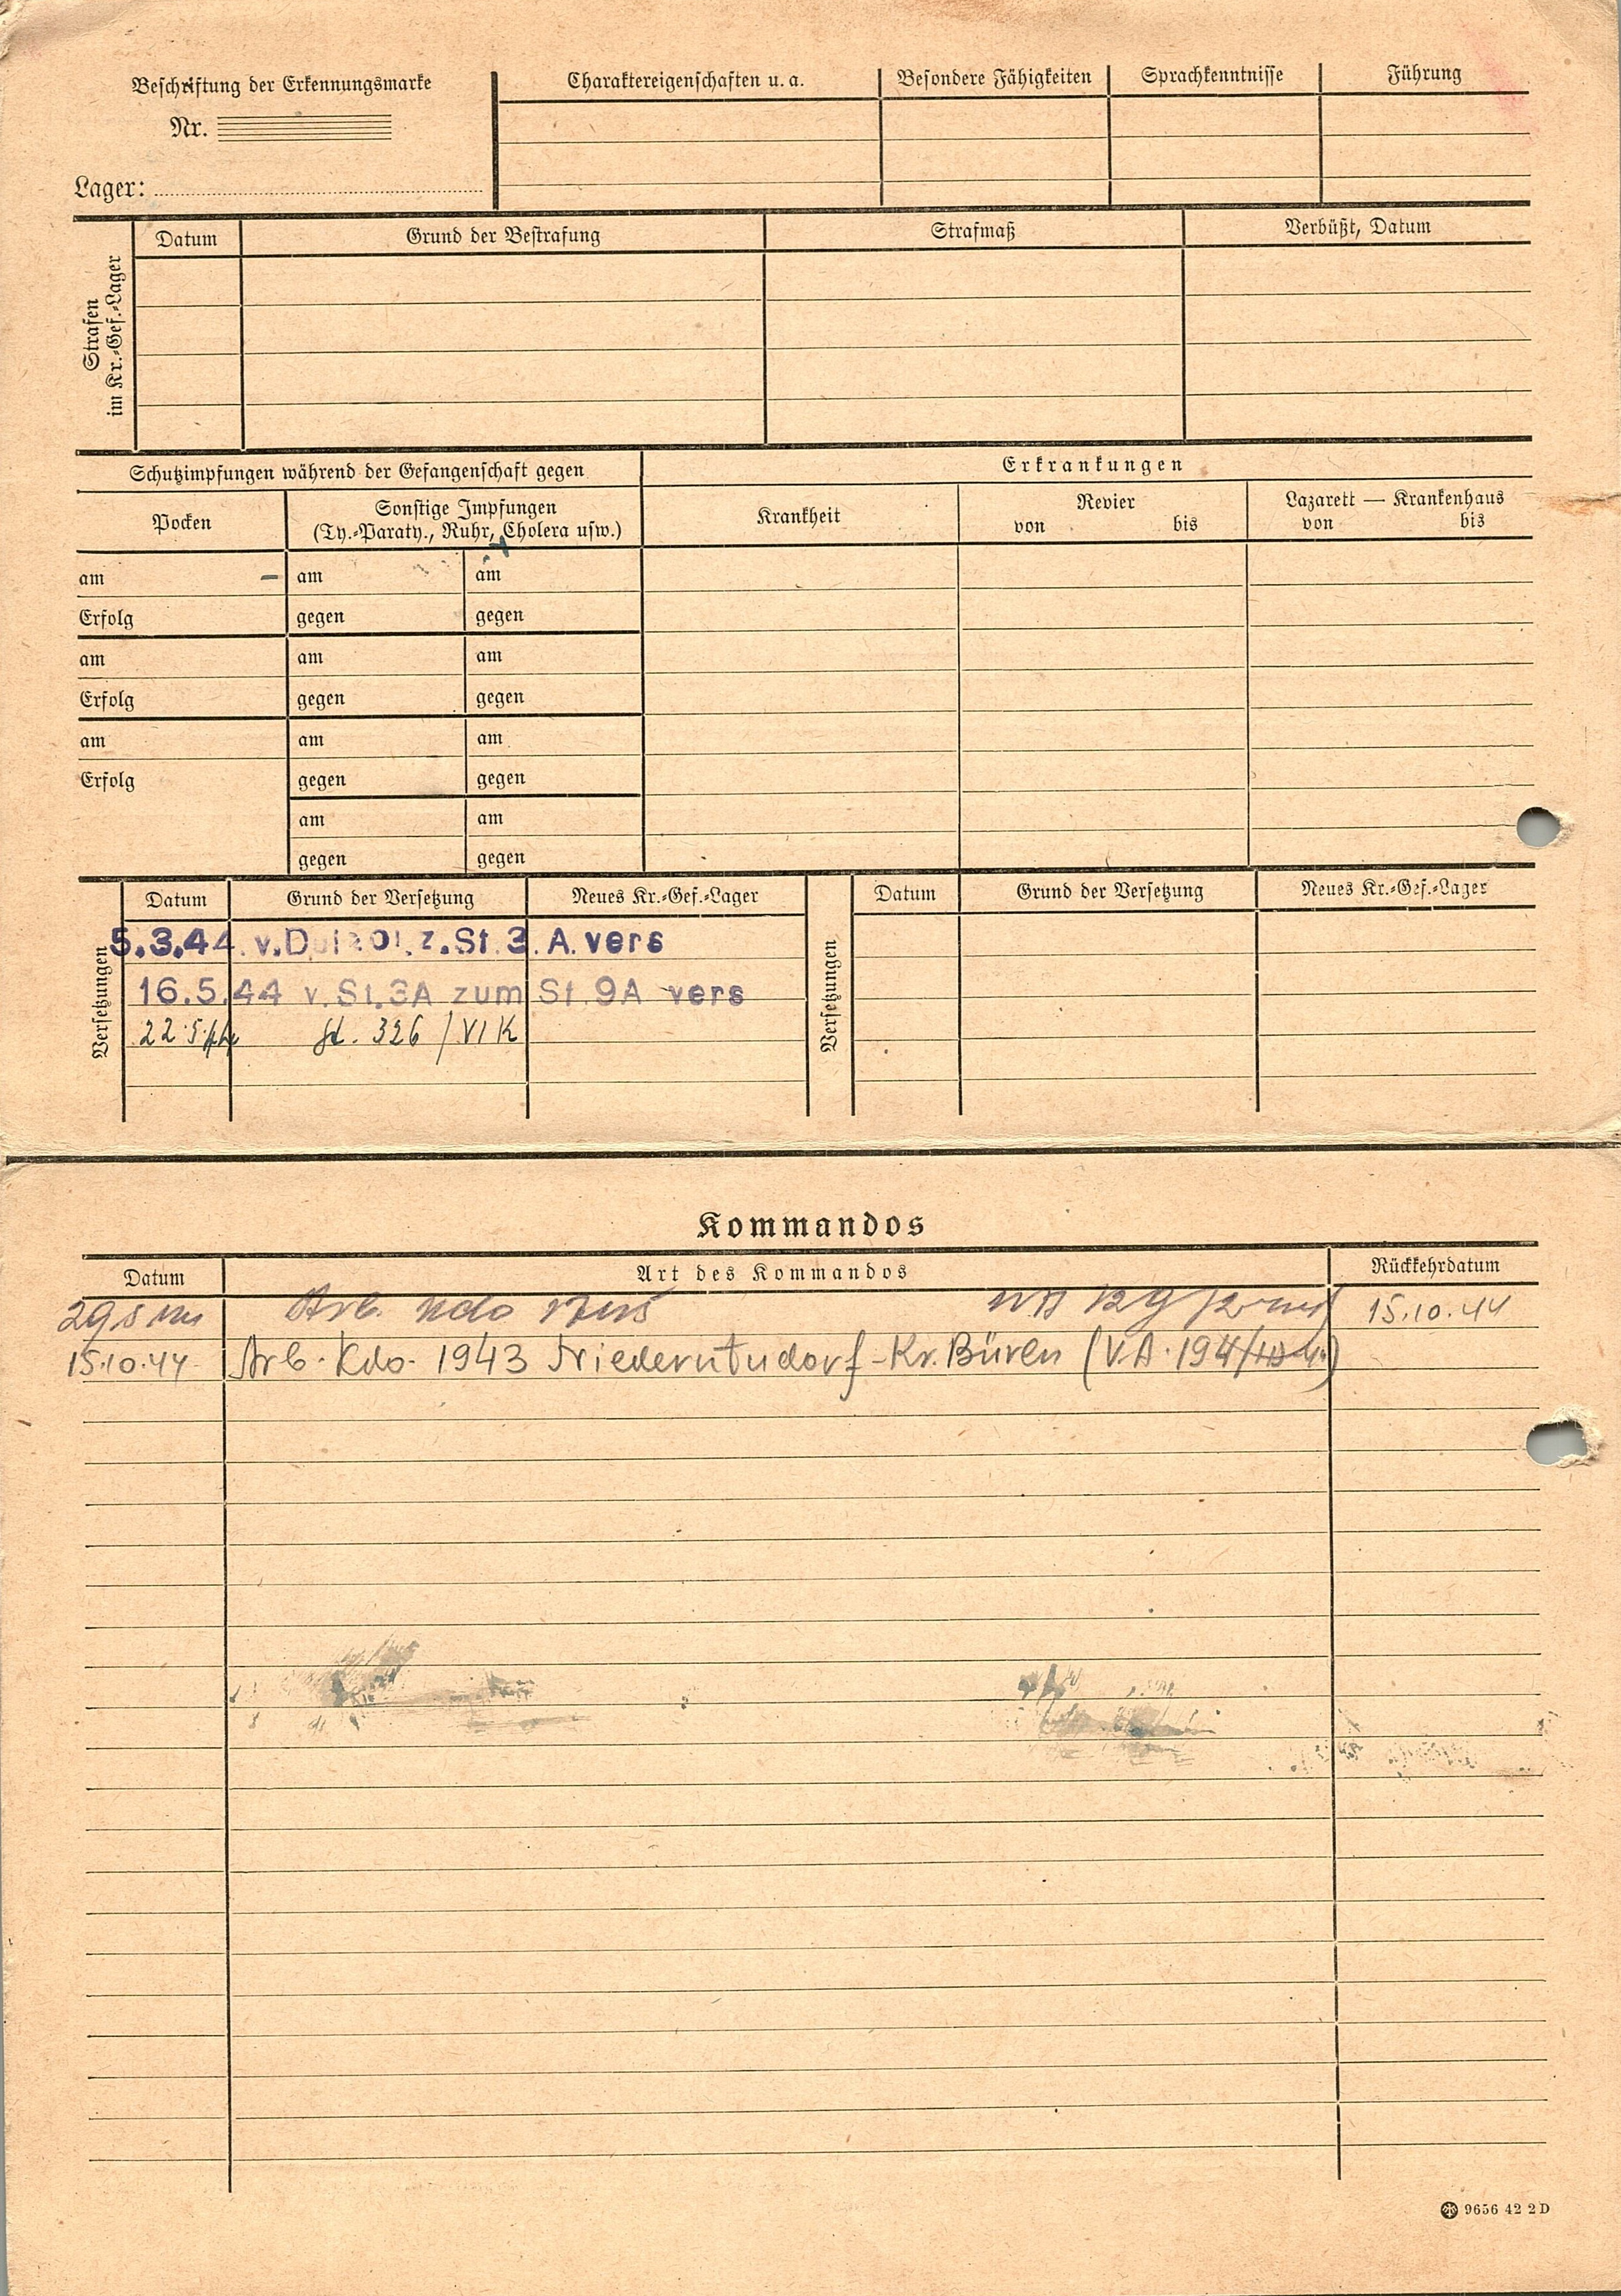 Beschriftung der Erkennungsmarke
Nr.
Lager:
Charaktereigenschaften u. a.
Besondere Fähigkeiten
Sprachkenntnisse
Führung
Strafen
im Kr.-Gef.-Lager
Datum
Grund der Bestrafung
Strafmaß
Verbüßt, Datum
Schutzimpfungen während der Gefangenschaft gegen
Erkrankungen
Pocken
Sonstige Impfungen
(Ty.-Paraty., Ruhr, Cholera usw.)
Krankheit
Revier
von bis
Lazarett — Krankenhaus
von bis
am am am
Erfolg gegen gegen
am am am
Erfolg gegen gegen
am am am
Erfolg gegen gegen
am am
gegen gegen
Versetzungen
Datum Grund der Versetzung Neues Kr.-Gef.-Lager
5.3.44. z. St. 3. A. vers
16.5.44 v. St. 3A zum St. 9A vers
22.5. St. 326 / VI K
Versetzungen
Datum Grund der Versetzung Neues Kr.-Gef.-Lager
Kommandos
Datum Art des Kommandos Rückkehrdatum
Arb. 15.10.44
15.10.44 Arb. Kdo. 1943 Niederntudorf-Kr. Büren (V.A. 194/
9656 42 2 D